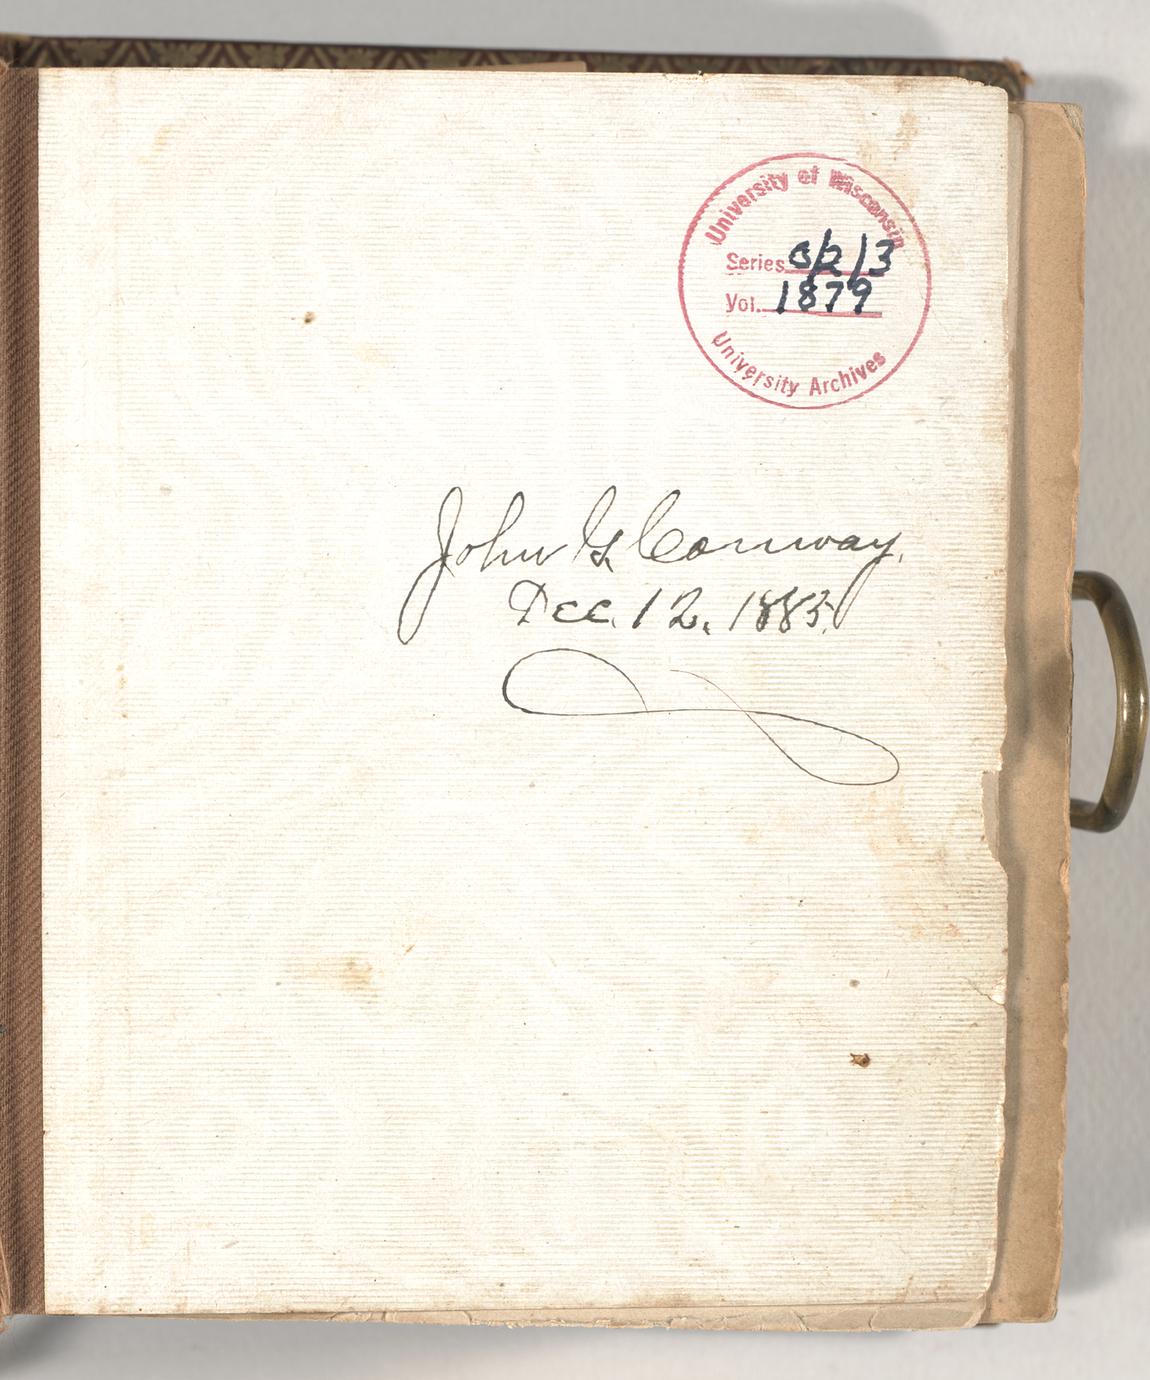 University of Wisconsin
Series 0/2/3
Vol. 1879
University Archives
John G. Conway.
Dec. 12. 1885.